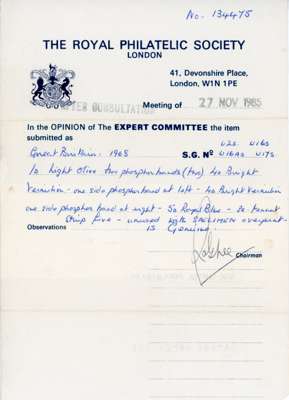 No. 134475
THE ROYAL PHILATELIC SOCIETY
LONDON
41, Devonshire Place,
London, W1N 1PE
AFTER CONSULTATION
Meeting of 27 NOV 1985
In the OPINION of The EXPERT COMMITTEE the item
submitted as
U25 U16S
Great Britain. 1968 S.G. Nº U16AS U17S
1s Light Olive two phosphor bands (two) 4d Bright
Vermilion - one side phosphor band at left - 4d Bright Vermilion
one side phosphor band at right - 5d Royal Blue - se-tenant
strip five - unused with SPECIMEN overprint -
Observations IS Genuine.
Chairman